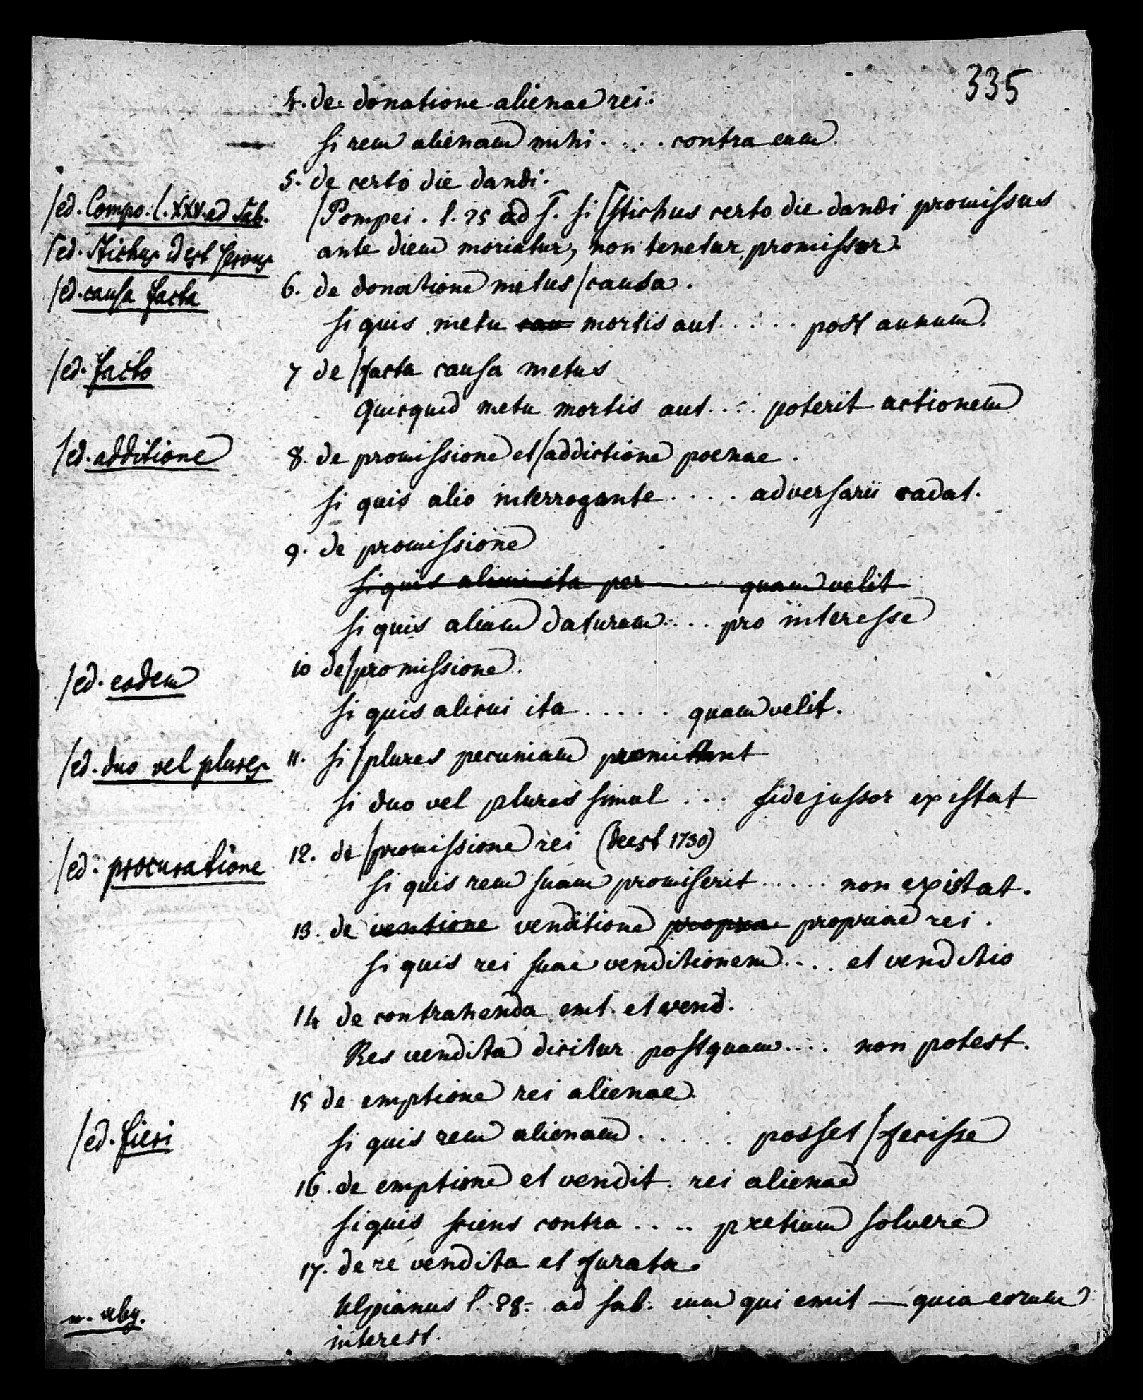 335
4. de donatione alienae rei.
si rem alienam mihi . . . . contra eum
5. de certo die dandi.
/ed. Compo. l. XXV. ad Sab.
/Pompei. l. 25 ad S. si /Stichus certo die dandi promissus
/ed. Stichus id est servus
ante diem moriatur, non tenetur promissor
6. de donatione metus /causa.
/ed. causa facta
si quis metu cau mortis aut . . . . . post annum.
/ed. facto
7 de /facta causa metus
Quicquid metu mortis aut . . . . poterit actionem
/ed. additione
8. de promissione et /addictione poenae.
si quis alio interrogante . . . . . adversarii cadat.
9. de promissione
si quis alicui ita per . . . . . quam velit
si quis alium daturum . . . . pro interesse
/ed. eadem
10 de /promissione.
si quis alicui ita . . . . . . quam velit.
/ed. duo vel plures
11. si /plures pecuniam promittant
si duo vel plures simul . . . fidejussor existat
/ed. procuratione
12. de /promissione rei (deest 1730)
si quis rem suam promiserit . . . . . non existat.
13. de ventione venditione propria propriae rei.
si quis rei suae venditionem . . . . et venditio
14 de contrahenda emt. et vend.
Res vendita dicitur postquam . . . . non potest.
15 de emptione rei alienae
/ed. fieri
si quis rem alienam . . . . . . posset /fecisse
16. de emptione et vendit. rei alienae
si quis sciens contra . . . . pretium solvere
17. de re vendita et furata.
Ulpianus l. 28. ad Sab. eum qui emit — quia eorum
interest.